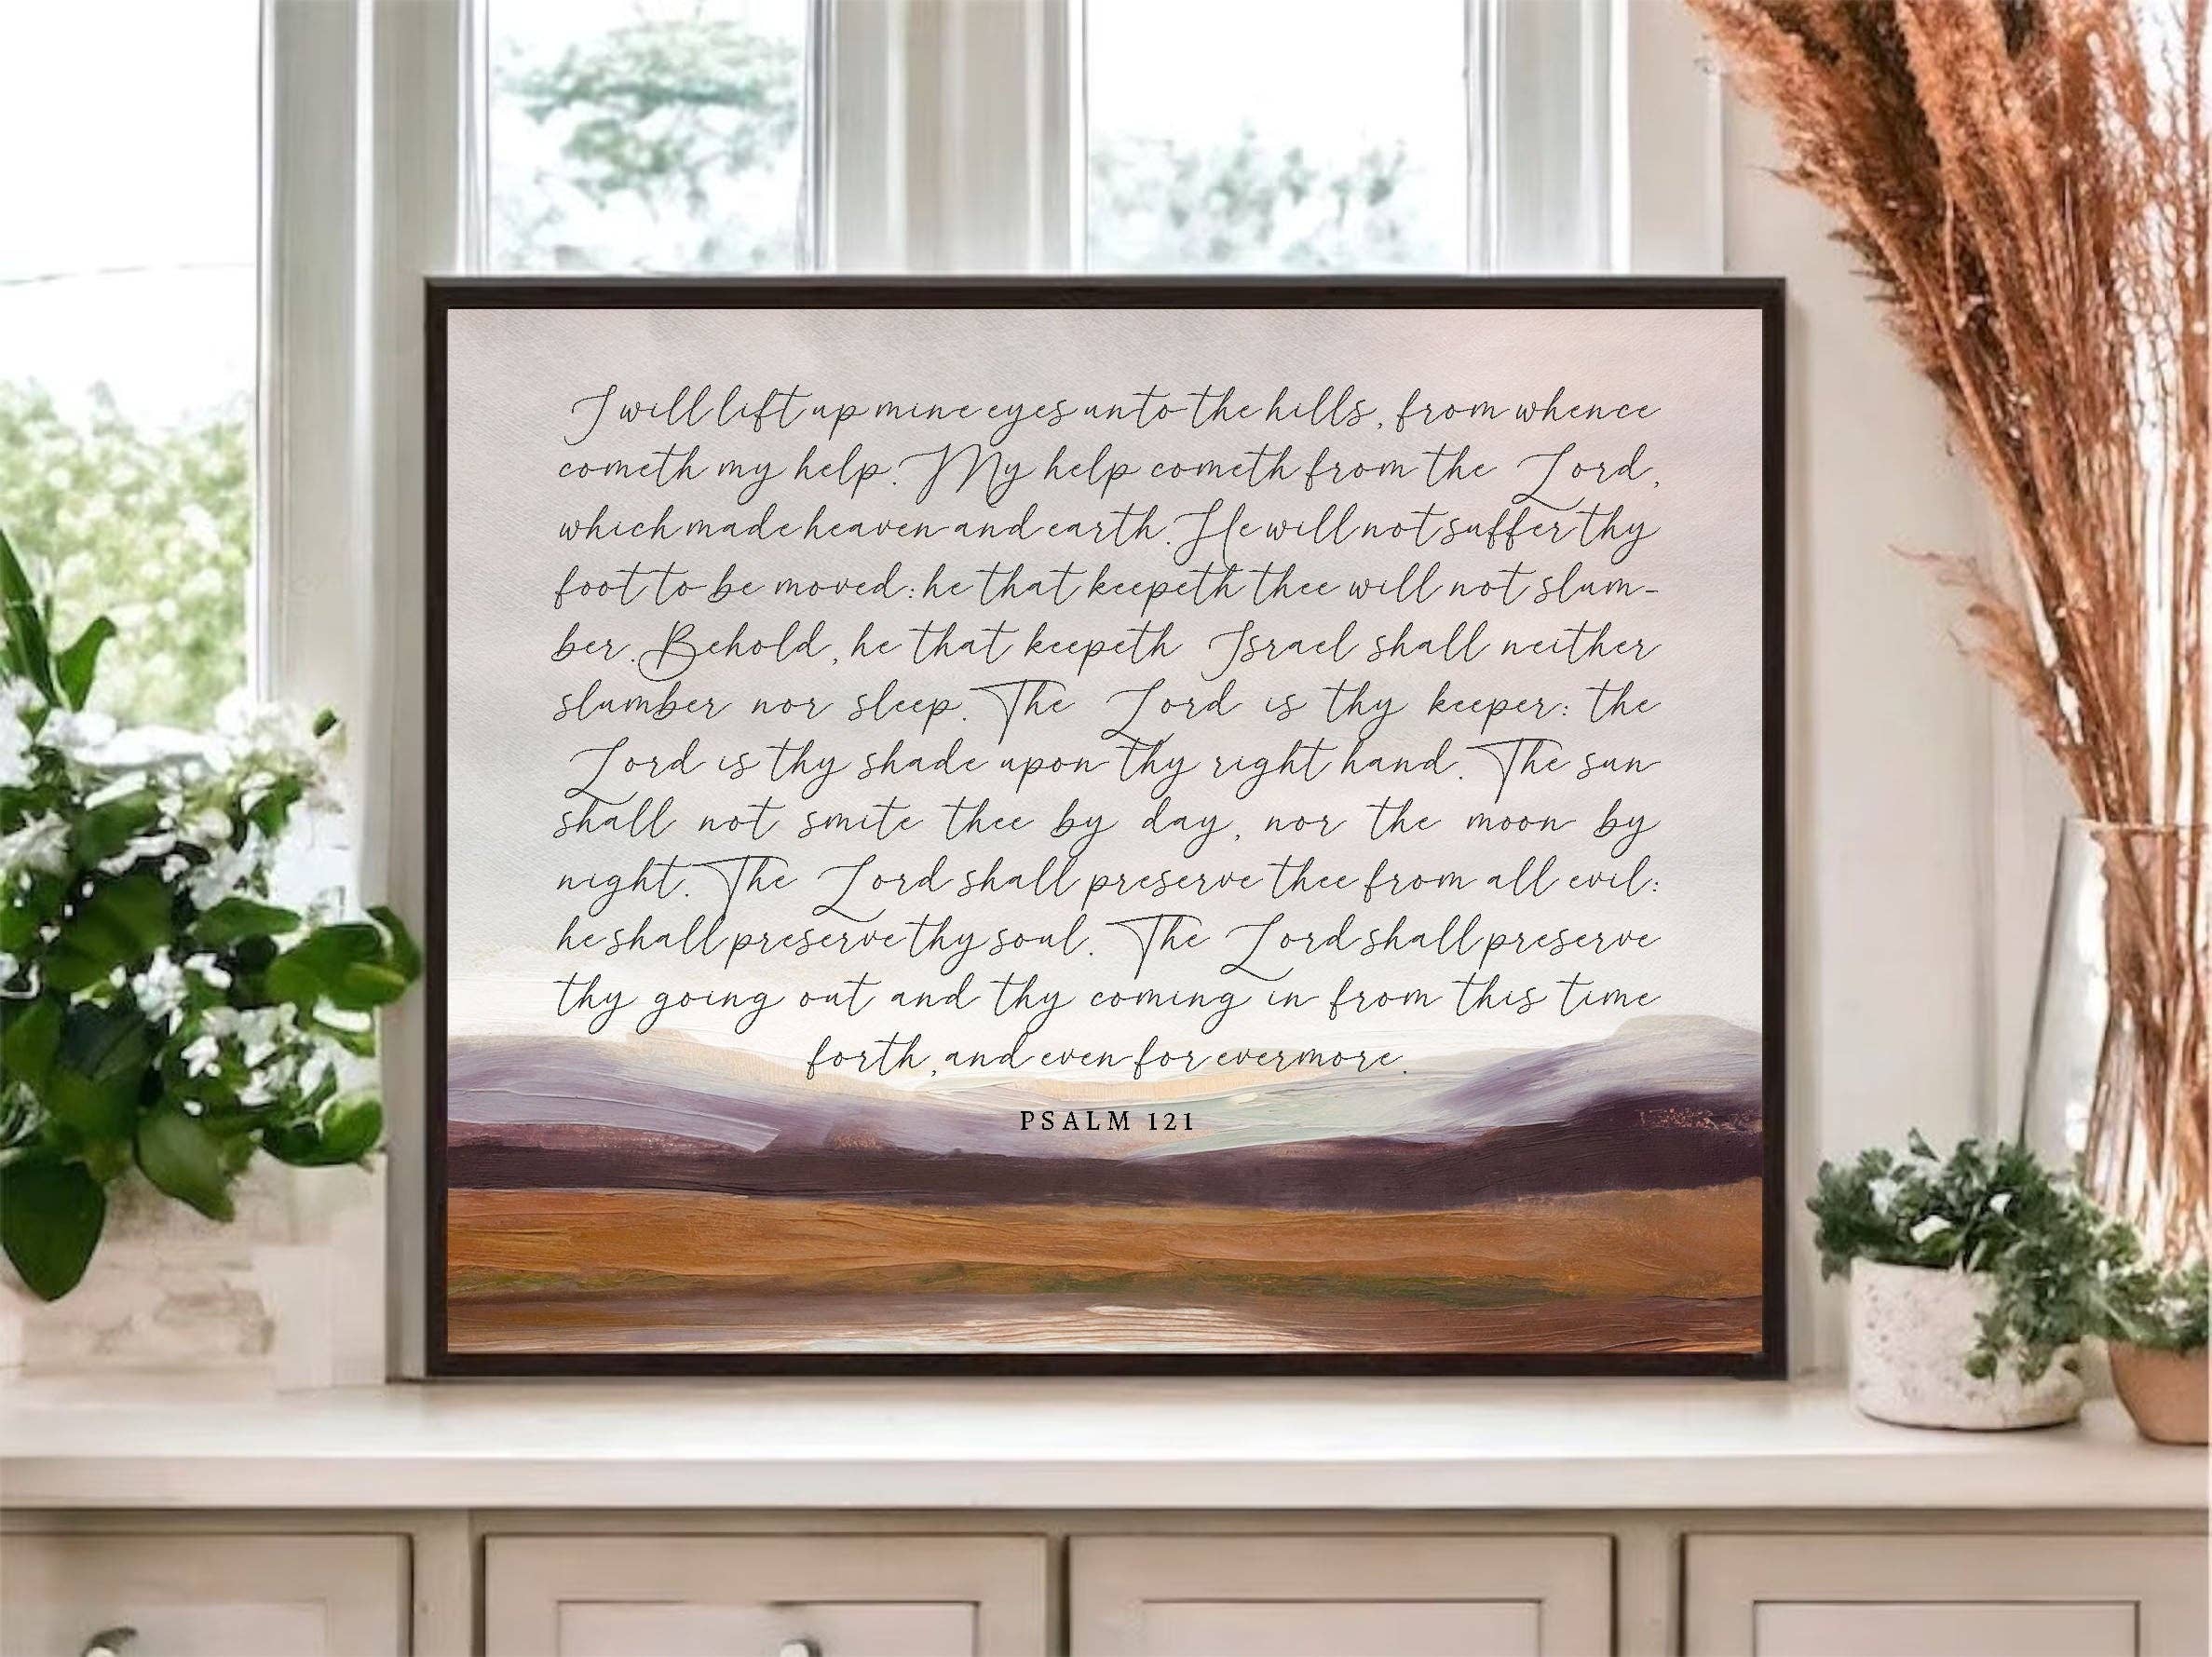 I will lift up mine eyes unto the hills, from whence
cometh my help. My help cometh from the Lord,
which made heaven and earth. He will not suffer thy
foot to be moved: he that keepeth thee will not slum-
ber. Behold, he that keepeth Israel shall neither
slumber nor sleep. The Lord is thy keeper: the
Lord is thy shade upon thy right hand. The sun
shall not smite thee by day, nor the moon by
night. The Lord shall preserve thee from all evil:
he shall preserve thy soul. The Lord shall preserve
thy going out and thy coming in from this time
forth, and even for evermore.
PSALM 121